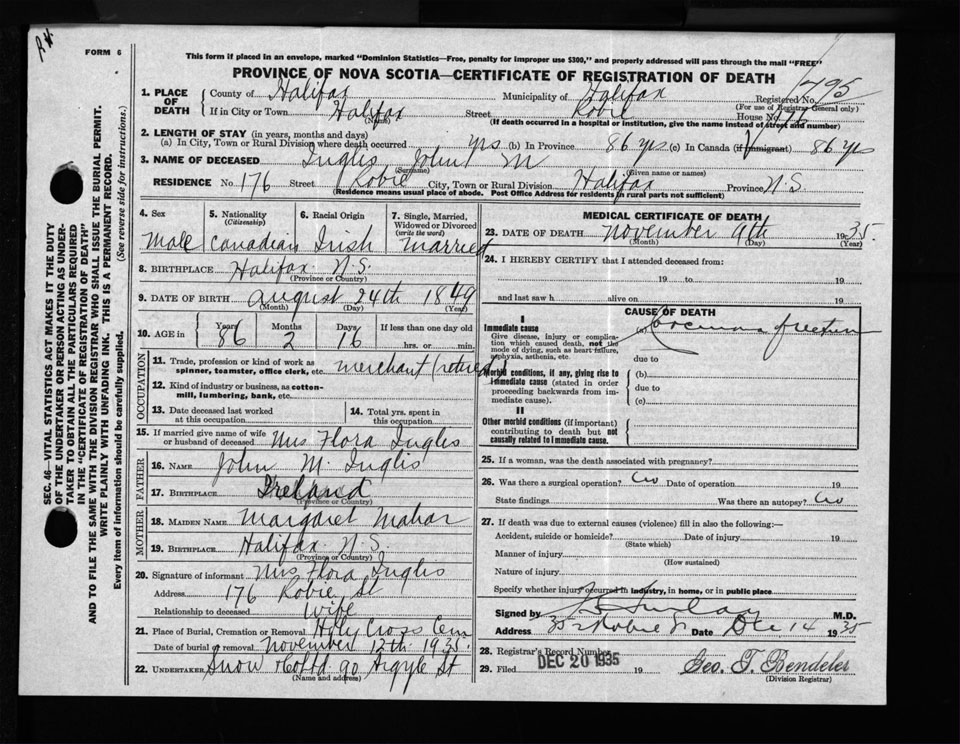 FORM 6
This form if placed in an envelope, marked "Dominion Statistics—Free, penalty for improper use $300," and properly addressed will pass through the mail "FREE"
PROVINCE OF NOVA SCOTIA—CERTIFICATE OF REGISTRATION OF DEATH
1. PLACE OF DEATH County of Halifax Municipality of Halifax Registered No. 1795
(For use of Registrar General only)
If in City or Town Halifax Street Robie House No. 176
(Name) (If death occurred in a hospital or institution, give the name instead of street and number)
2. LENGTH OF STAY (in years, months and days)
(a) In City, Town or Rural Division where death occurred yrs (b) In Province 86 yrs (c) In Canada (if immigrant) 86 yrs
3. NAME OF DECEASED Inglis John M
(Surname) (Given name or names)
RESIDENCE No. 176 Street Robie City, Town or Rural Division Halifax Province N.S.
(Residence means usual place of abode. Post Office Address for residents in rural parts not sufficient)
4. Sex 5. Nationality (Citizenship) 6. Racial Origin 7. Single, Married, Widowed or Divorced (write the word)
Male Canadian Irish Married
8. BIRTHPLACE Halifax N.S.
(Province or Country)
9. DATE OF BIRTH August 24th 1849
(Month) (Day) (Year)
10. AGE in Years Months Days If less than one day old
86 2 16 hrs. or min.
OCCUPATION
11. Trade, profession or kind of work as spinner, teamster, office clerk, etc. merchant (retired)
12. Kind of industry or business, as cotton-mill, lumbering, bank, etc.
13. Date deceased last worked at this occupation
14. Total yrs. spent in this occupation
15. If married give name of wife or husband of deceased Mrs Flora Inglis
FATHER
16. NAME John M. Inglis
17. BIRTHPLACE Ireland
(Province or Country)
MOTHER
18. MAIDEN NAME Margaret Mahar
19. BIRTHPLACE Halifax N.S.
(Province or Country)
20. Signature of informant Mrs Flora Inglis
Address 176 Robie St
Relationship to deceased Wife
21. Place of Burial, Cremation or Removal Holy Cross Cem
Date of burial or removal November 12th 1935.
22. UNDERTAKER Snow & Co Ltd 90 Argyle St
(Name and address)
MEDICAL CERTIFICATE OF DEATH
23. DATE OF DEATH November 9th 1935.
(Month) (Day) (Year)
24. I HEREBY CERTIFY that I attended deceased from:
19 to 19
and last saw h alive on 19
CAUSE OF DEATH
I
Immediate cause
Give disease, injury or complication which caused death, not the mode of dying, such as heart failure, asphyxia, asthenia, etc.
(a) Carcinoma of rectum
due to
Morbid conditions, if any, giving rise to immediate cause (stated in order proceeding backwards from immediate cause).
(b)
due to
(c)
II
Other morbid conditions (if important) contributing to death but not causally related to immediate cause.
25. If a woman, was the death associated with pregnancy?
26. Was there a surgical operation? No Date of operation 19
State findings Was there an autopsy? No
27. If death was due to external causes (violence) fill in also the following:—
Accident, suicide or homicide? Date of injury 19
(State which)
Manner of injury
(How sustained)
Nature of injury
Specify whether injury occurred in industry, in home, or in public place
Signed by M.D.
Address Robie St Date Dec 14 1935
28. Registrar's Record Number
29. Filed DEC 20 1935 19 Geo. T. Bendeler
(Division Registrar)
SEC. 46—VITAL STATISTICS ACT MAKES IT THE DUTY
OF THE UNDERTAKER OR PERSON ACTING AS UNDER-
TAKER TO OBTAIN ALL THE PARTICULARS REQUIRED
IN THE "CERTIFICATE OF REGISTRATION OF DEATH"
AND TO FILE THE SAME WITH THE DIVISION REGISTRAR WHO SHALL ISSUE THE BURIAL PERMIT.
WRITE PLAINLY WITH UNFADING INK. THIS IS A PERMANENT RECORD.
Every item of information should be carefully supplied. (See reverse side for instructions.)